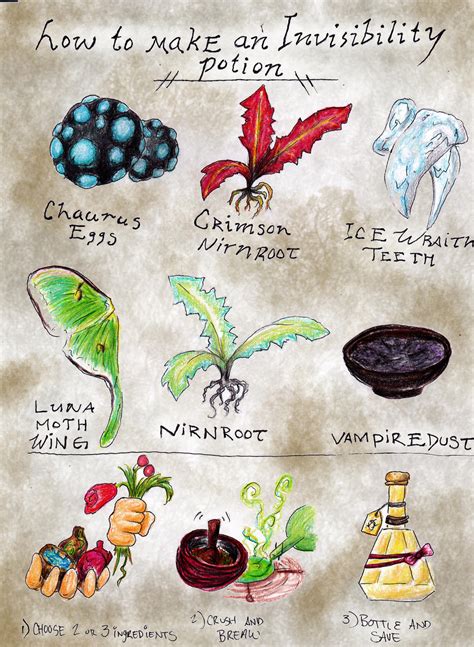 How to make an Invisibility
Potion
Chaurus
Eggs
Crimson
Nirnroot
ICE WRAITH
TEETH
LUNA
MOTH
WING
NIRNROOT
VAMPIRE DUST
1) CHOOSE 2 OR 3 INGREDIENTS
2) CRUSH AND
BREW
3) BOTTLE AND
SAVE